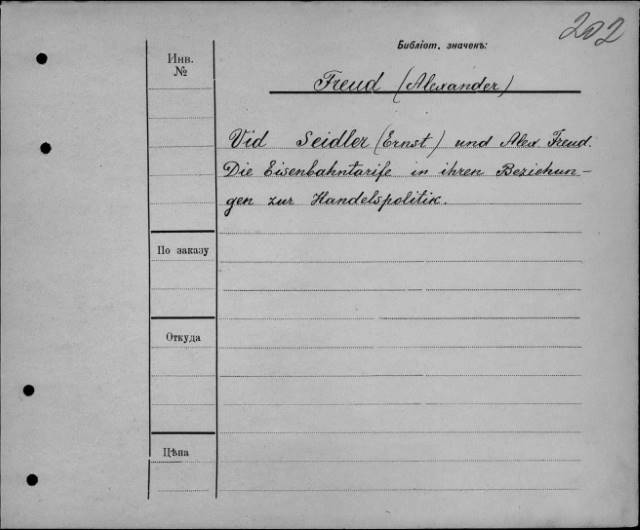 202
Библіот. значенъ:
Инв.
№
Freud (Alexander)
Vid Seidler (Ernst) und Alex Freud.
Die Eisenbahntarife in ihren Beziehun-
gen zur Handelspolitik.
По заказу
Откуда
Цѣна